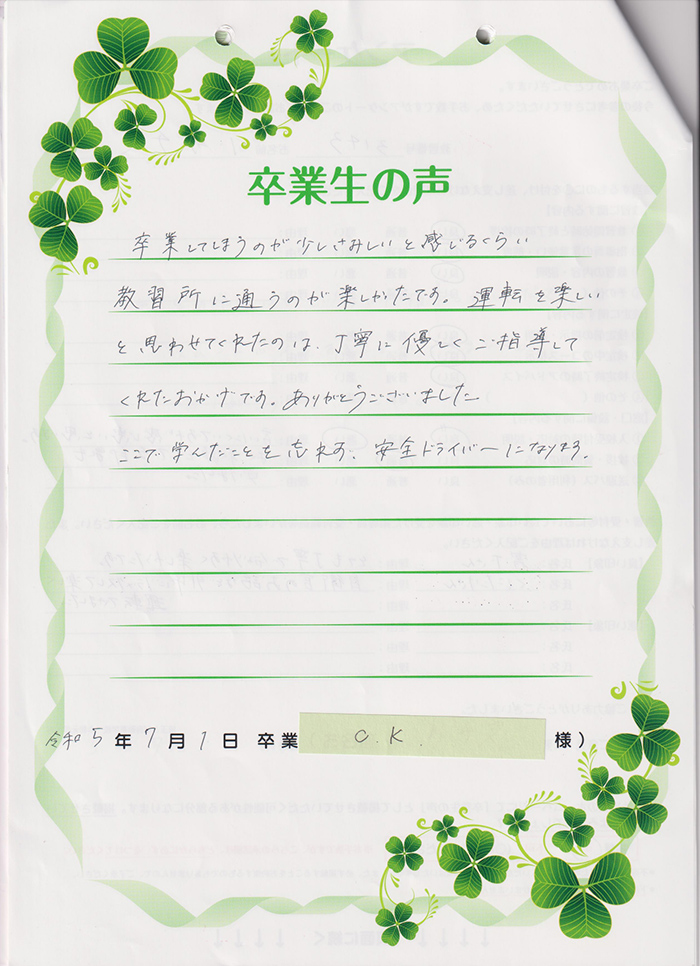 卒業生の声
卒業してしまうのが少しさみしいと感じるくらい
教習所に通うのが楽しかたです。運転を楽しい
と思わせてくれたのは、丁寧に優しくご指導して
くれたおかげです。ありがとうございました
ここで学んだことを忘れず、安全ドライバーになります。
令和5年7月1日 卒業 C.K. 様)